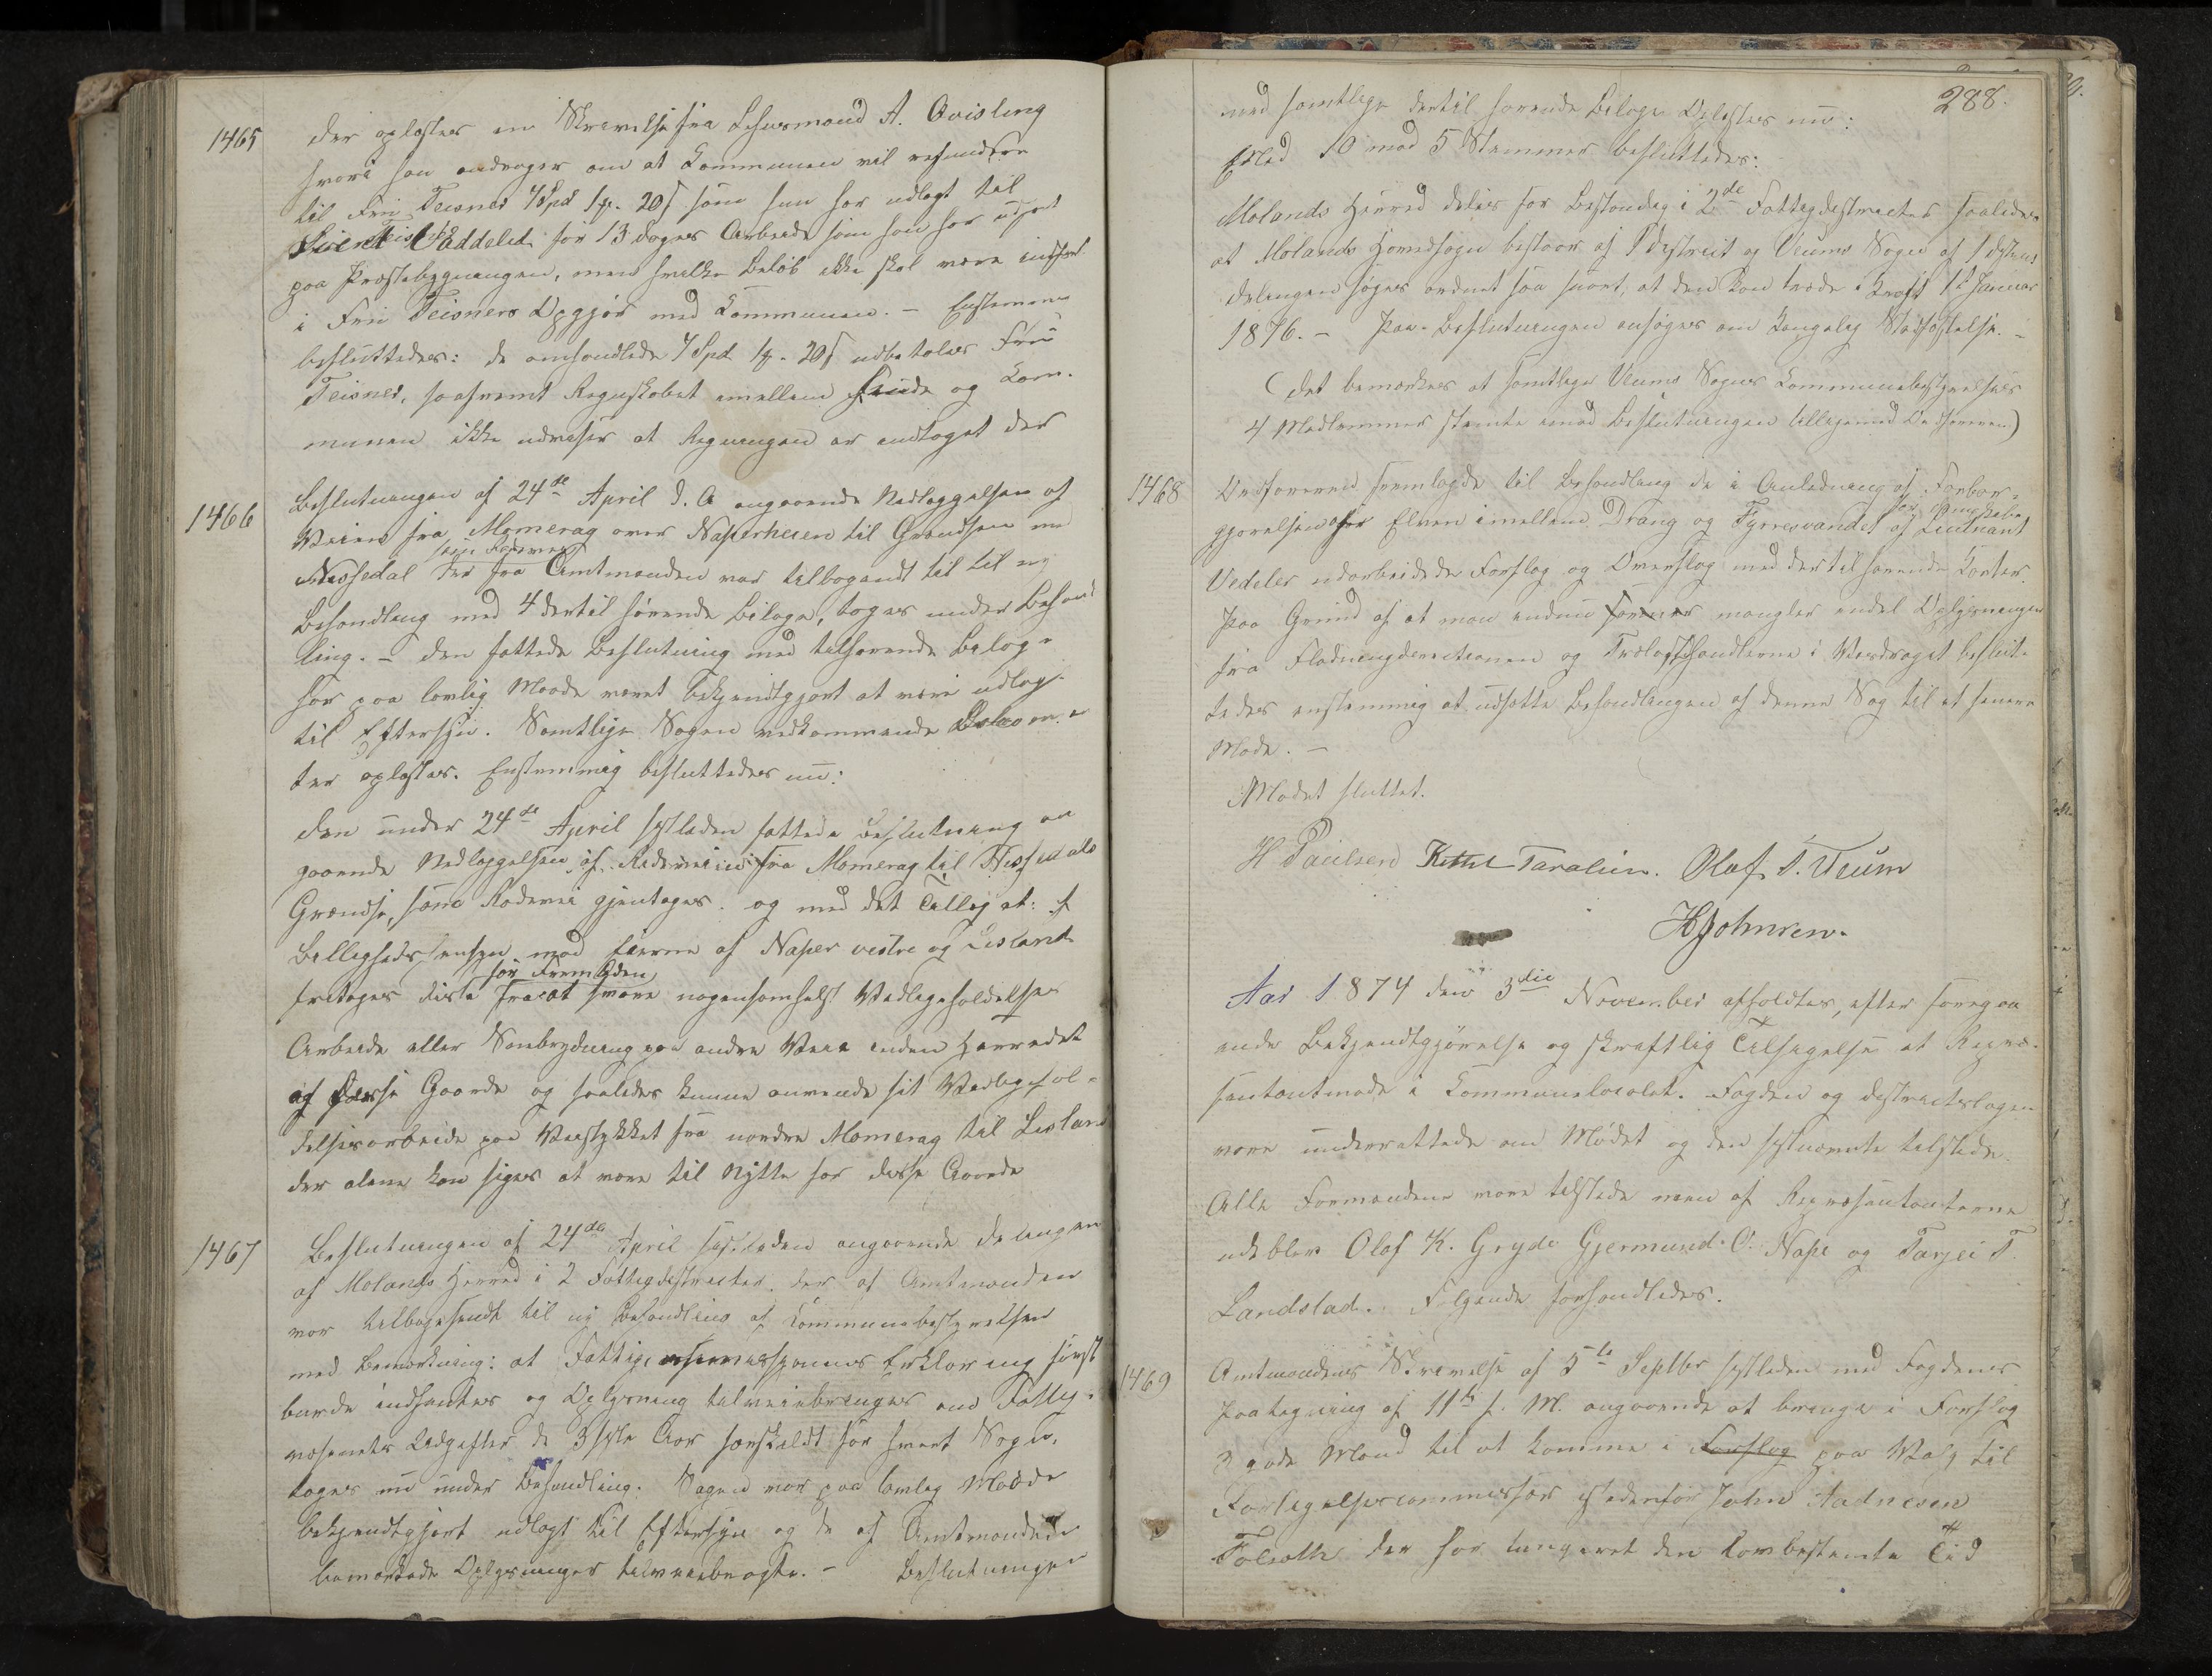 1465 Der oplæstes en Skrivelse fra Lehnsmand A. Qvisling
hvori han andrager om at Kommunen vil refundere
til Fru Teisner 4 Spd 1 ₰ 20 s som hun har udlagt til
for 13 Dages Arbeide som han har udført
paa Præstebygningen, men hvilke Beløb ikke skal være indført
i Fru Teisners Opgjør med Kommunen. – Enstemmig
besluttedes: de omhandlede 4 Spd 1 ₰ 20 s udbetales Fru
Teisner, saafremt Regnskabet imellem hende og Kom-
munen ikke udviser at Regningen er indtaget der
1466 Beslutningen af 24de April d. A. angaaende Nedlæggelsen af
Veien fra Momerag over Naperheien til Grændsen mod
Nissedal som Rodevei
der fra Amtmanden var tilbagesendt til ny
Behandling med 4 dertil hørende Bilage, toges under Behand
ling. – Den fattede Beslutning med tilhørende Bilage
har paa lovlig Maade været bekjendtgjort at være udlagt
til Eftersyn. Samtlige Sagen vedkommende Dokumen
ter oplæstes. Enstemmig besluttedes nu:
Den under 24de April sidstleden fattede Beslutning an
gaaende Nedlæggelsen af Rodeveien fra Momerag til Nissedals
Grændse, som Rodevei gjentages og med det Tillæg at af
Billighedshensyn mod Eierne af Naper vestre og Lisland
for Fremtiden
fritages disse fra at svare nogensomhelst Vedligeholdelses
Arbeide eller Snebrydning paa andre Veie inden Herredet
af disse Gaarde og saaledes kunne anvende sit Vedligehol-
delsesarbeide paa Veistykket fra nordre Momerag til Lisland
der alene kan siges at være til Nytte for disse Gaarde
1467 Beslutningen af 24de April sidstleden angaaende Delingen
af Molands Herred i 2 Fattigdistrikter, der af Amtmanden
var tilbagesendt til ny Behandling af Kommunebestyrelsen
med Bemærkning: at Fattigcommissionens Erklæring først
burde indhentes og Oplysning tilveiebringes om Fattig-
væsenets Udgifter de 3 sidste Aar særskildt for hvert Sogn,
toges nu under Behandling. Sagen var paa lovlig Maade
bekjendtgjort udlagt til Eftersyn og de af Amtmanden
bemærkede Oplysninger tilveiebragte. – Beslutningen
288.
med samtlige dertil hørende Bilage Oplæstes nu:
Med 10 mod 5 Stemmer besluttedes:
Molands Herred deles for Bestandig i 2de Fattigdistricter saaledes
at Molands Hovedsogn bestaar af 1 Distrikt og Veums Sogn af 1 Distrikt
Delingen søges ordnet saa snart, at den kan træde i Kraft 1ste Januar
1876. – Paa Beslutningen ansøges om Kongelig Stadfæstelse. –
(Det bemærkes at samtlige Veums Sogns Kommunebestyrelses
4 Medlemmer stemte imod Beslutningen tilligemed Ordføreren)
1468 Ordføreren fremlagde til Behandling de i Anledning af Farbar-
gjørelsen af Elven imellem Drang og Fyrresvandet af Lieutnant
Vedeler udarbeidede Forslag og Overslag med dertil hørende Karter.
Paa Grund af at man endnu mangler endel Oplysninger
fra Flødningsdirectionen og Trælasthandlerne i Vasdraget beslut-
tedes enstemmig at udsætte Behandlingen af denne Sag til et senere
Møde. –
Mødet sluttet.
H Paulsen Kittel Taraldsen. Olaf T. Veum
H Johnsen.
Aar 1874 den 3die November afholdtes, efter foregaa
ende Bekjendtgjørelse og skriftlig Tilsigelse et Repræ-
sentantmøde i Kommunelocalet. Fogden og Distriktslægen
vare underrettede om Mødet og den sidstnævnte tilstede.
Alle Formændene vare tilstede men af Repræsentanterne
udeblev Olaf K. Gryde Gjermund O. Nape og Tarjei T.
Landslad. Følgende forhandledes.
1469 Amtmandens Skrivelse af 5te Septbr sidstleden med Fogdens
Paategning af 11te s. M. angaaende at bringe i Forslag
3 gode Mænd til at komme i Forslag paa Valg til
Forligelsescommissær istedenfor John Aadnesen
Foldsæth der har fungeret den Lovbestemte Tid